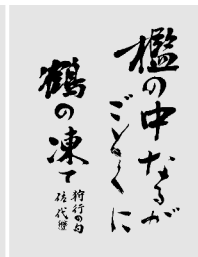 檻の中なるが
ごとくに
鶴の凍て
狩行の句
佐代